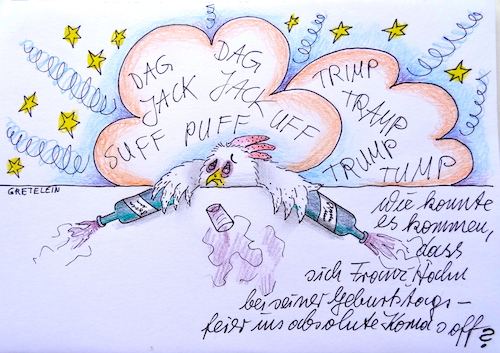 DAG DAG
JACK JACK
SUFF PUFF UFF
TRIMP
TRAMP
TRUMP
TUMP
GRETELEIN
Wie konnte
es kommen,
dass
sich Franz Hahn
bei seiner Geburtstags-
feier ins absolute Koma soff?